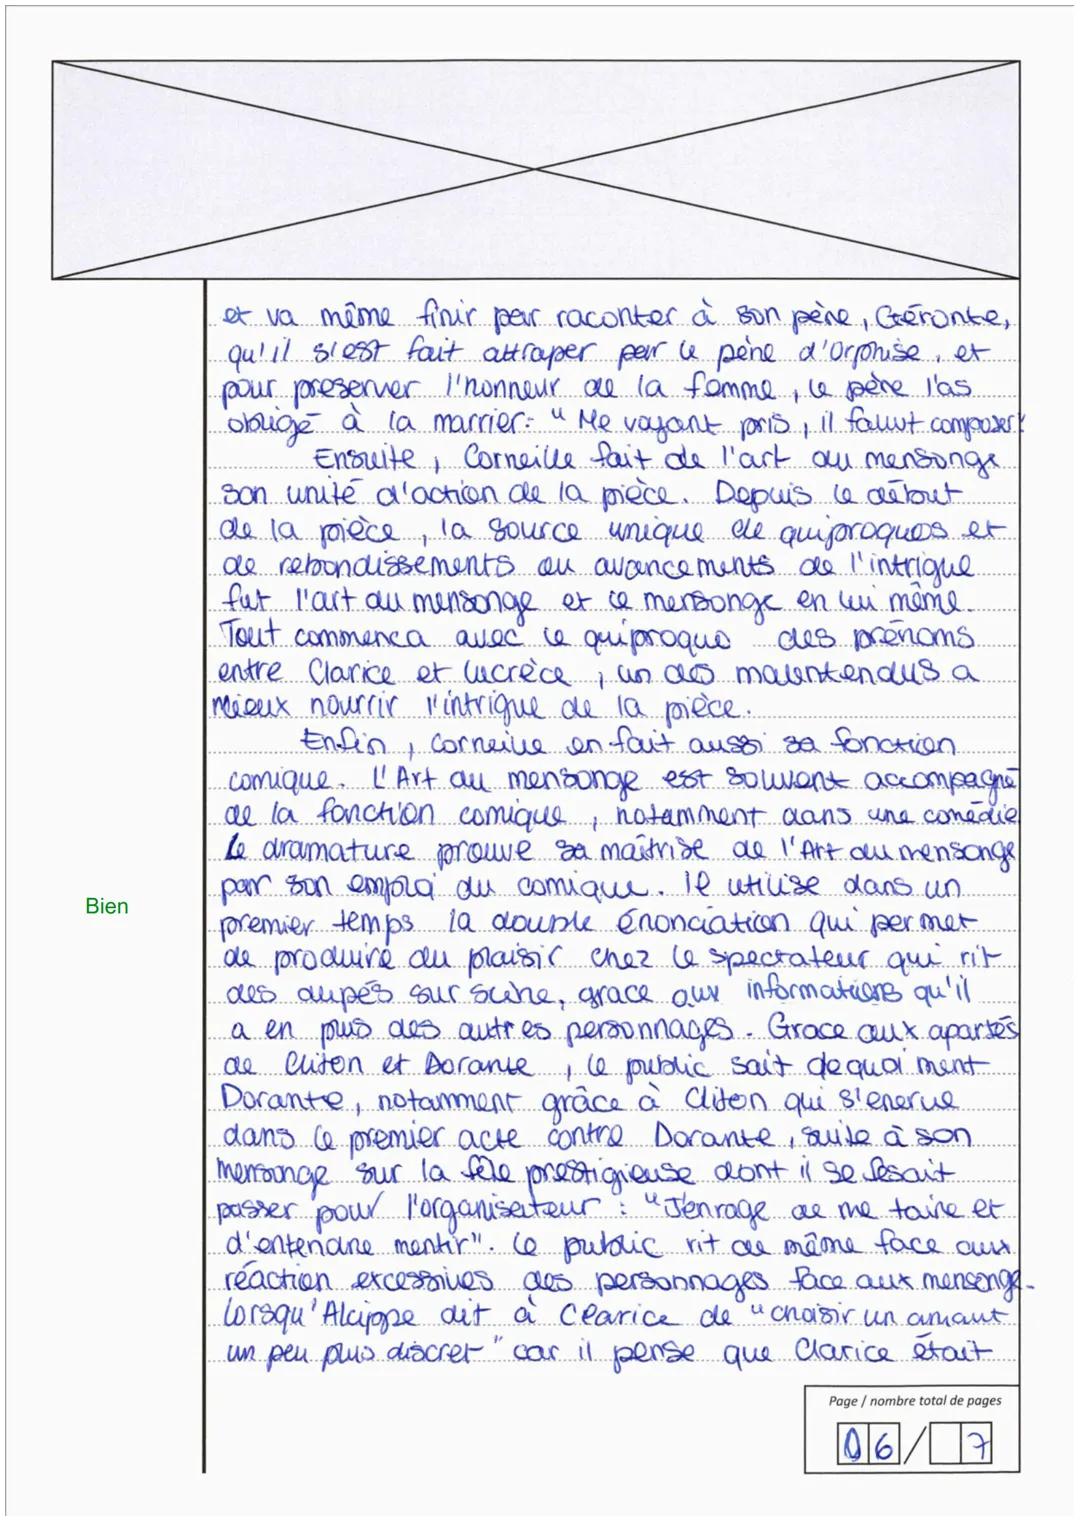 et va même finir par raconter à son père, Géronte,
qu'il s'est fait attraper par le père d'Orphise, et
pour preserver l'honneur de la femme, le père l'as
obligé à la marrier: "Me voyant pris, il fallut composer"
Ensuite, Corneille fait de l'art du mensonge
son unité d'action de la pièce. Depuis le début
de la pièce, la source unique de quiproquos et
de rebondissements ou avancements de l'intrigue
fut l'art du mensonge et le mensonge en lui même.
Tout commenca avec le quiproquo des prénoms
entre Clarice et Lucrèce, un des malentendus a
mieux nourrir l'intrigue de la pièce.
Enfin, Corneille en fait aussi sa fonction
comique. L'Art du mensonge est souvent accompagné
de la fonction comique, notamment dans une comédie
Le dramature prouve sa maîtrise de l'Art du mensonge
par son emploi du comique. Il utilise dans un
Bien
premier temps la double énonciation qui permet
de produire du plaisir chez le spectateur qui rit
des dupés sur scène, grace aux informations qu'il
a en plus des autres personnages. Grace aux apartés
de Cliton et Dorante, le public sait de quoi ment
Dorante, notamment grâce à Cliton qui s'enerve
dans le premier acte contre Dorante, suite à son
mensonge sur la fête prestigieuse dont il se fesait
passer pour l'organisateur : "J'enrage de me taire et
d'entendre mentir". Le public rit de même face aux
réaction excessives des personnages face aux mensonge.
Lorsqu'Alcippe dit à Clarice de "choisir un amant
un peu plus discret" car il pense que Clarice était
Page / nombre total de pages
06/7